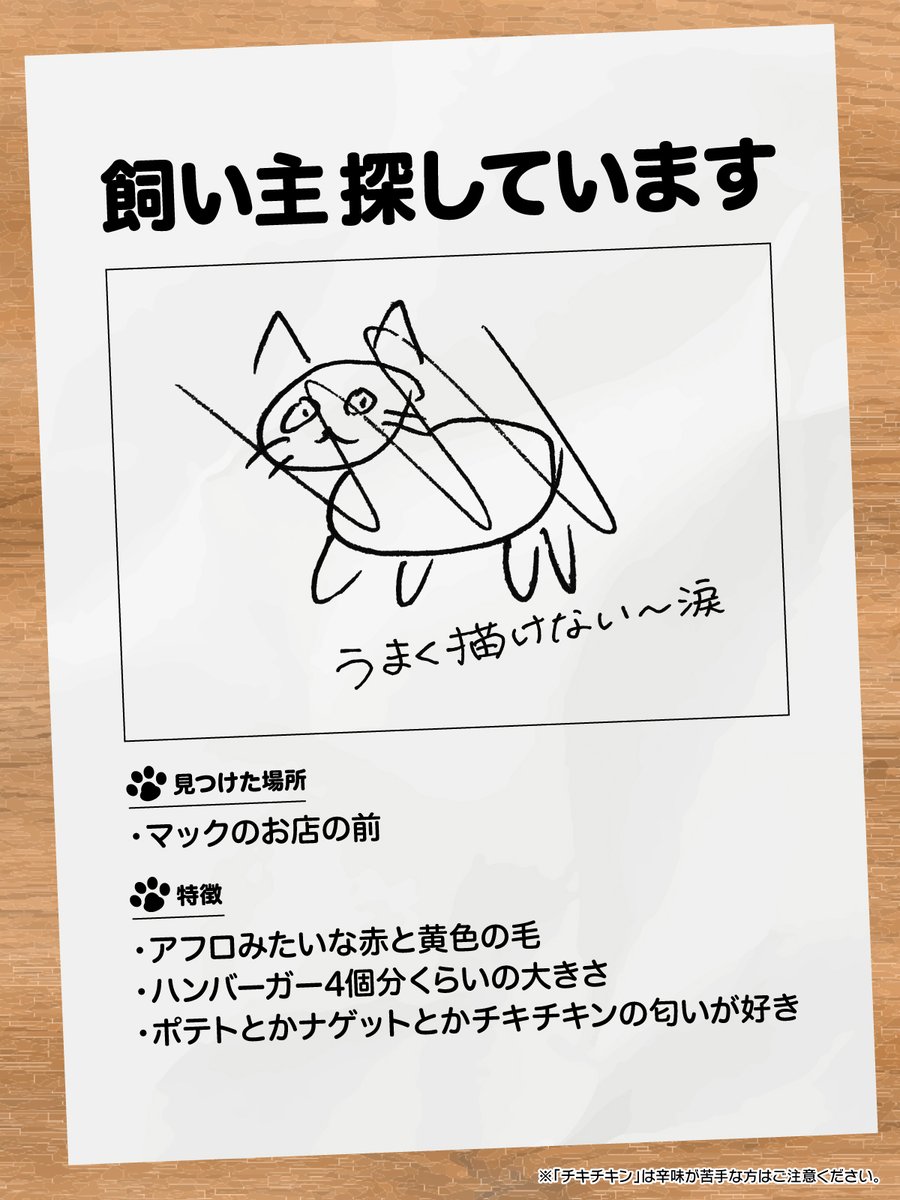 飼い主 探しています
うまく描けない〜涙
見つけた場所
・マックのお店の前
特徴
・アフロみたいな赤と黄色の毛
・ハンバーガー4個分くらいの大きさ
・ポテトとかナゲットとかチキチキンの匂いが好き
※「チキチキン」は辛味が苦手な方はご注意ください。